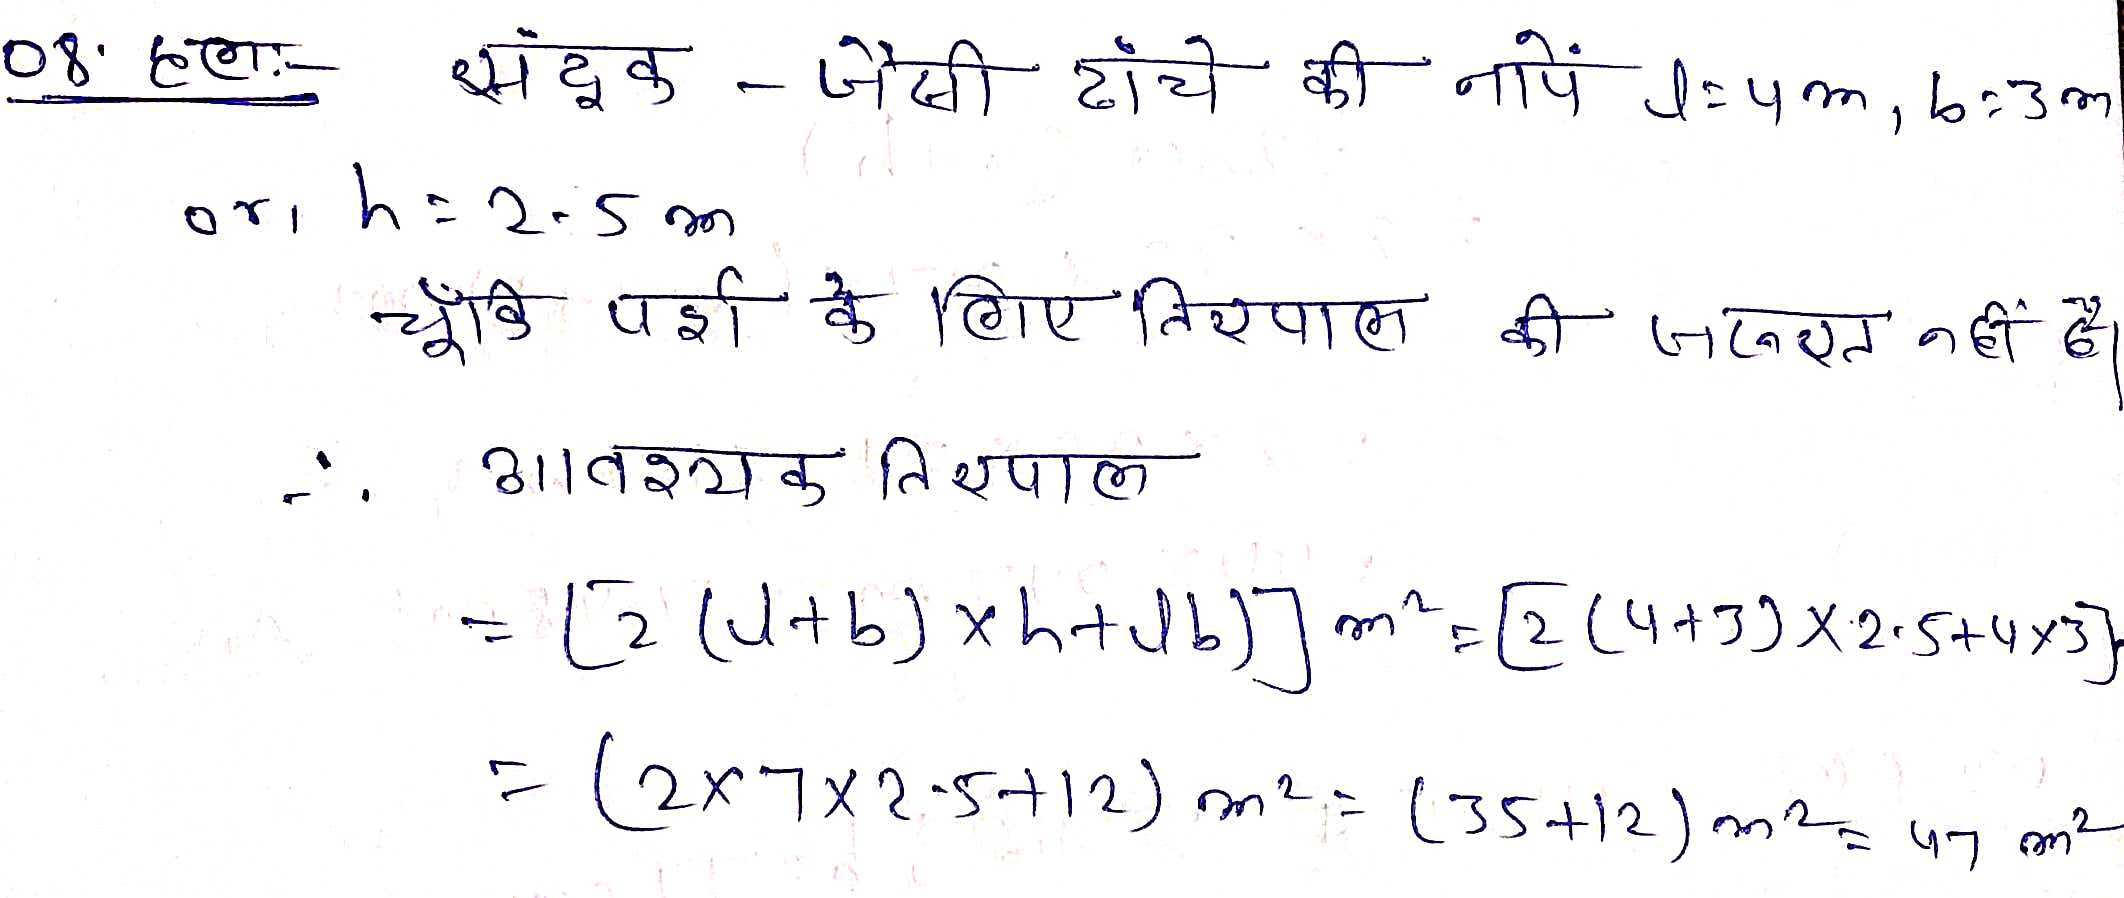 08. हलः-  संदूक - जैसी ढाँचे की नापें l = 4 m, b = 3 m
or, h = 2.5 m
चूँकि पर्श के लिए तिरपाल की जरूरत नहीं है।
∴ आवश्यक तिरपाल
= [2 (l+b) × h + lb)] m² = [2 (4+3) × 2.5 + 4×3]
= (2×7×2.5+12) m² = (35+12) m² = 47 m²